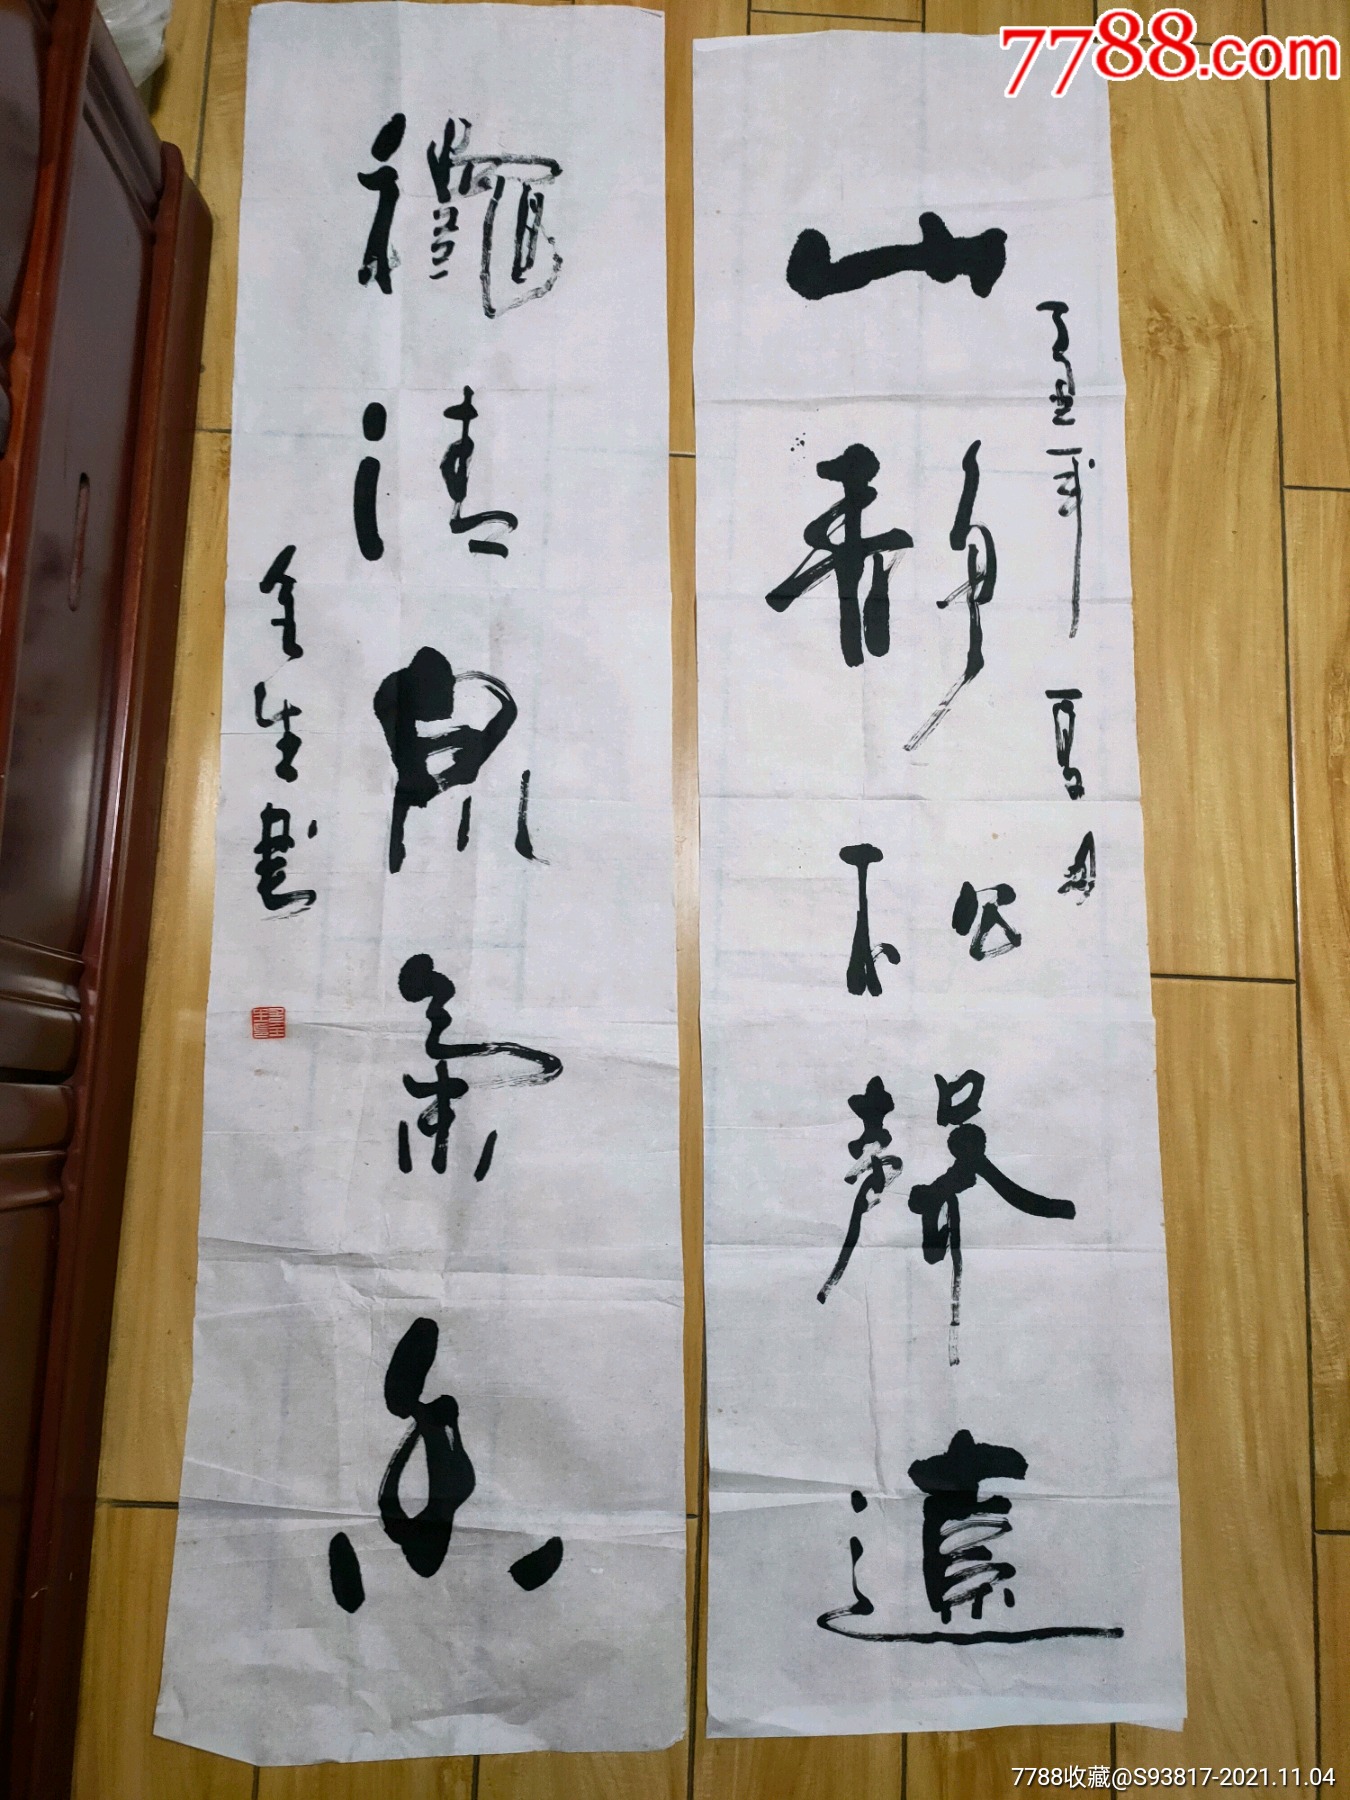 7788.com
山靜松聲遠
丁丑年 夏月
龝清泉氣香
金生書
7788收藏@S93817-2021.11.04